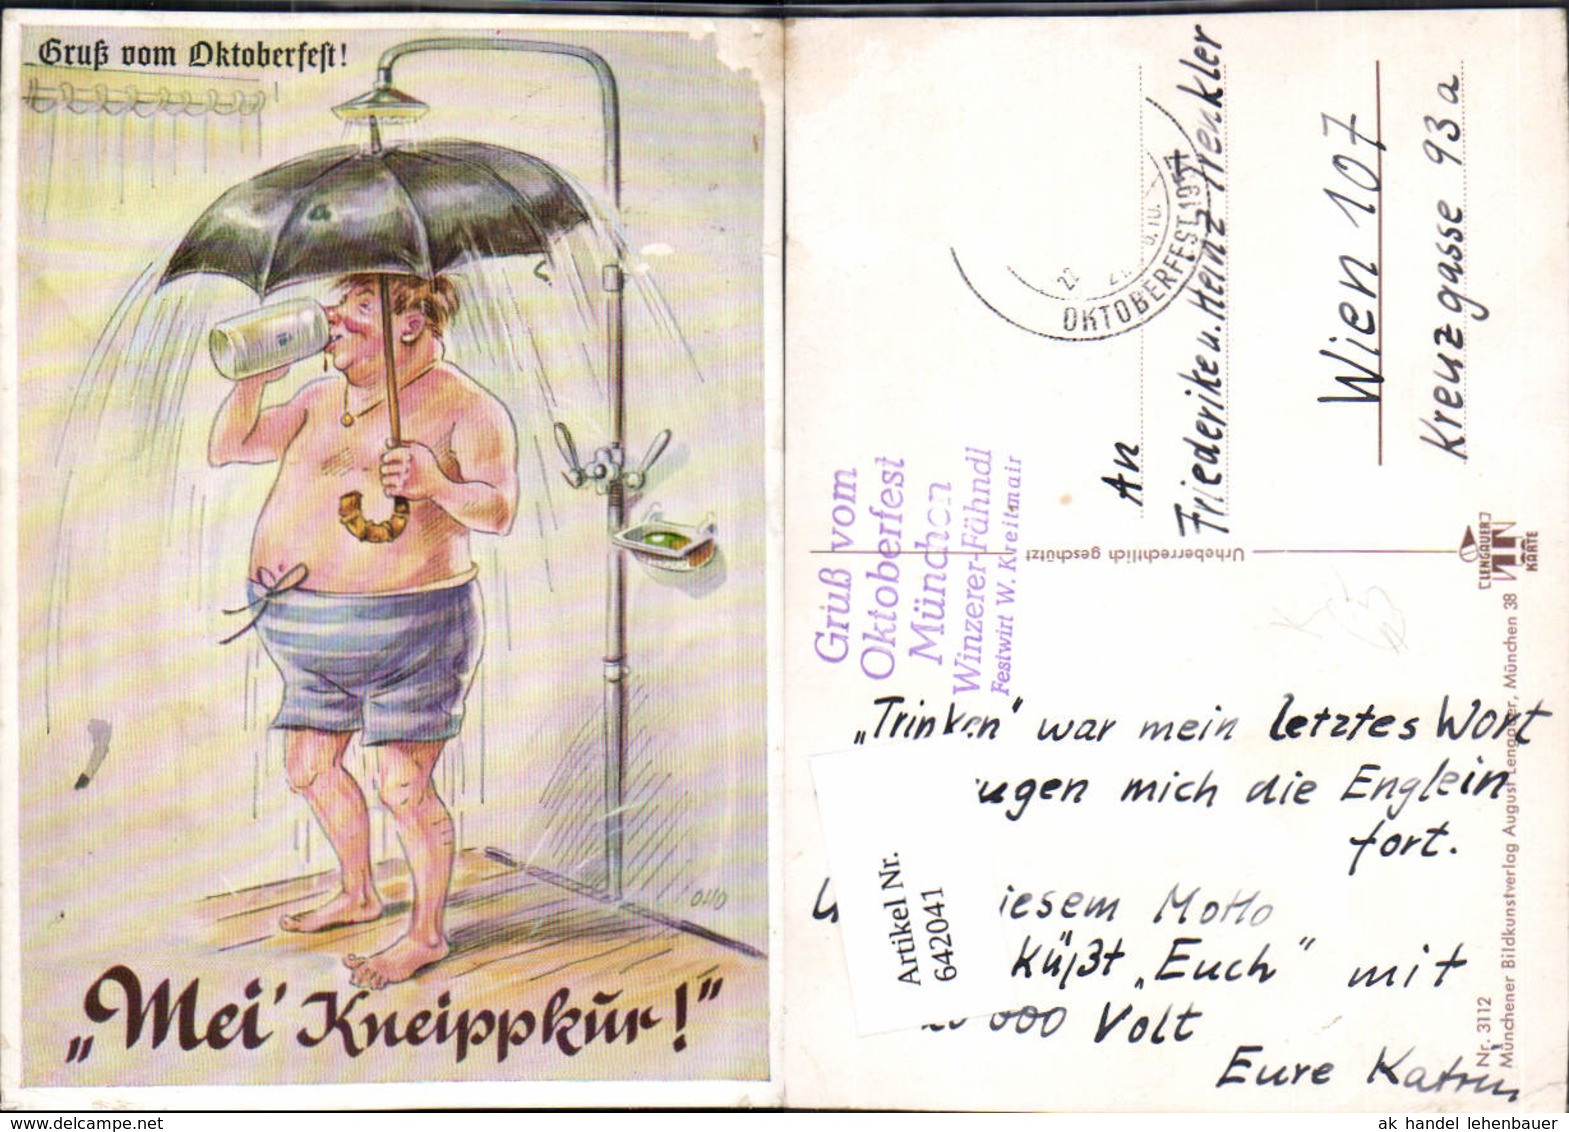 Gruß vom Oktoberfest!
OTTO
„Mei' Kneippkur!"
Gruß vom
Oktoberfest
München
Winzerer-Fähndl
Festwirt W. Kreitmair
OKTOBERFEST
An
Friederike u. Heinz Trenkler
Wien 107
Kreuzgasse 93a
Urheberrechtlich geschützt
LENGAUER
KARTE
Nr. 3112
Münchener Bildkunstverlag August Lengauer, München 38
„Trinken" war mein letztes Wort
mich die Englein
fort.
Motto
küßt „Euch" mit
000 Volt
Eure Katrin
Artikel Nr.
642041
ak handel lehenbauer